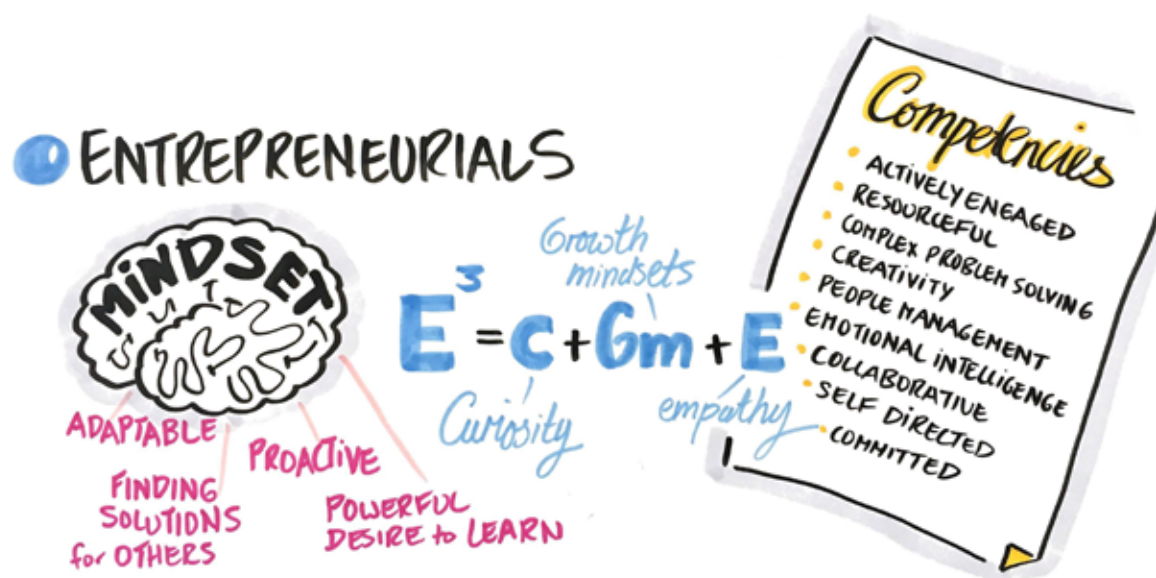 ENTREPRENEURIALS
MINDSET
ADAPTABLE
FINDING
SOLUTIONS
for OTHERS
PROACTIVE
POWERFUL
DESIRE to LEARN
Growth
mindsets
E³ = C + Gm + E
Curiosity
empathy
Competencies
• ACTIVELY ENGAGED
• RESOURCEFUL
• COMPLEX PROBLEM SOLVING
• CREATIVITY
• PEOPLE MANAGEMENT
• EMOTIONAL INTELLIGENCE
• COLLABORATIVE
• SELF DIRECTED
• COMMITTED